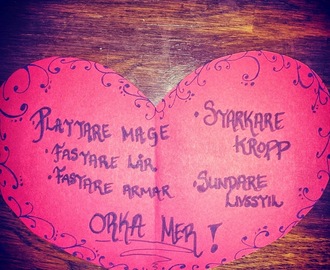 PLATTARE MAGE
• FASTARE LÅR
• FASTARE ARMAR
• STARKARE
KROPP
• SUNDARE
LIVSSTIL
ORKA MER!